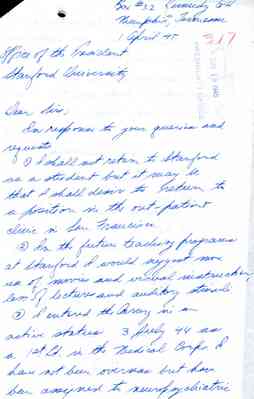 Box #32 Kennedy GH
Memphis, Tennessee
1 April 45
Office of the President
Stanford University
Dear Sir,
In response to your queries and
requests
① I shall not return to Stanford
as a student but it may be
that I shall desire to return to
a position in the out-patient
clinic in San Francisco.
② In the future teaching programs
at Stanford I would suggest more
use of movies and visual instruction,
less of lectures and auditory stimuli
③ I entered the Army in an
active status 3 July 44 as
a 1st Lt. in the Medical Corps. I
have not been overseas but have
been assigned to neuropsychiatric